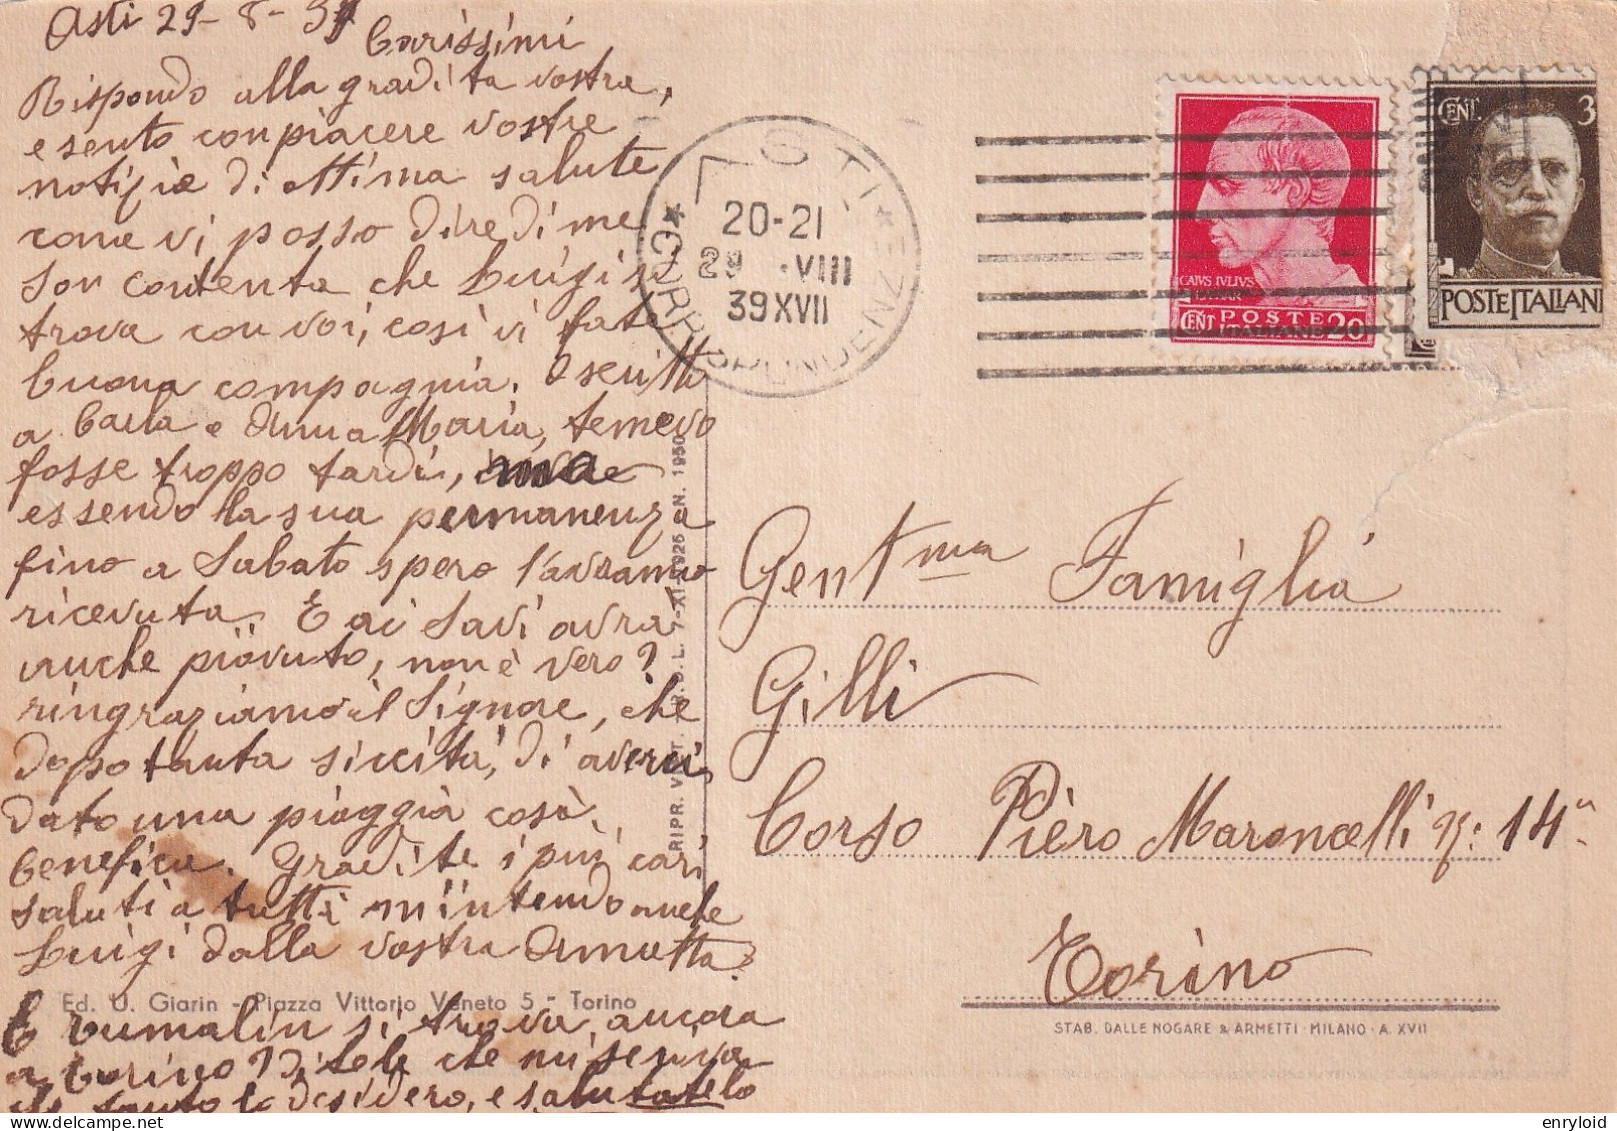 Asti 29-8-39
Carissimi
Rispondo alla gradita vostra,
e sento con piacere vostre
notizie di ottima salute
come vi posso dire di me
Son contenta che Luigi si
trova con voi, così vi fate
buona compagnia. Scritti
a Carla e Anna Maria, temevo
fosse troppo tardi, ma
essendo la sua permanenza
fino a Sabato spero l'avranno
ricevuta. E ai Savi avrà
anche piovuto, non è vero?
ringraziamo il Signore, che
dopo tanta siccità, di averci
dato una pioggia così
benefica. Gradite i più cari
saluti a tutti m'intendo anche
Luigi dalla vostra
E si trova ancora
a Torino? Ditele che mi scriva
tanto lo desidero, e salutatelo
Ed. U. Giarin - Piazza Vittorio Veneto 5 - Torino
RIPR. VIET. R.D.L. 7-XI-1925 N. 1950
ASTI
CORRISPONDENZE
20-21
29 .VIII
39 XVII
CAIVS IVLIVS
CENT POSTE ITALIANE 20
CENT. 3
POSTE ITALIAN
Gent.ma Famiglia
Gilli
Corso Piero Maroncelli N: 14
Torino
STAB. DALLE NOGARE & ARMETTI - MILANO - A. XVII
enryloid
www.delcampe.net